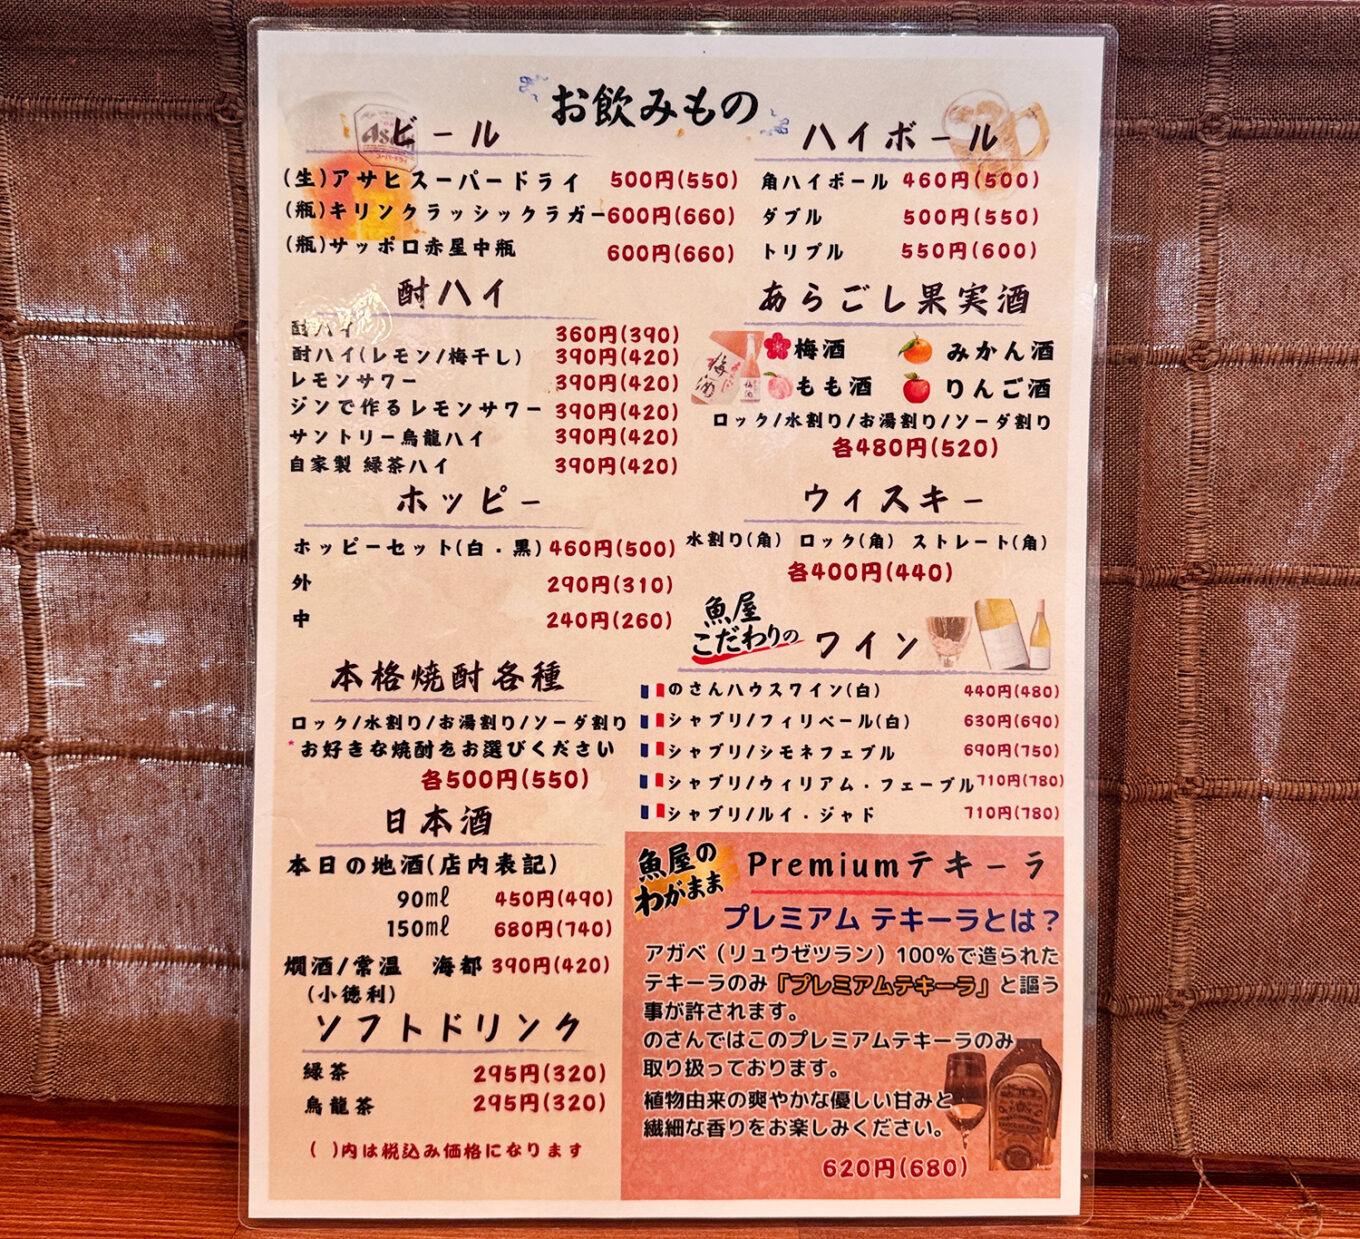 お飲みもの
ビール
(生)アサヒスーパードライ 500円(550)
(瓶)キリンクラッシックラガー 600円(660)
(瓶)サッポロ赤星中瓶 600円(660)
酎ハイ
酎ハイ 360円(390)
酎ハイ(レモン/梅干し) 390円(420)
レモンサワー 390円(420)
ジンで作るレモンサワー 390円(420)
サントリー烏龍ハイ 390円(420)
自家製 緑茶ハイ 390円(420)
ホッピー
ホッピーセット(白・黒) 460円(500)
外 290円(310)
中 240円(260)
本格焼酎各種
ロック/水割り/お湯割り/ソーダ割り
*お好きな焼酎をお選びください
各500円(550)
日本酒
本日の地酒(店内表記)
90㎖ 450円(490)
150㎖ 680円(740)
燗酒/常温 海都 390円(420)
(小徳利)
ソフトドリンク
緑茶 295円(320)
烏龍茶 295円(320)
( )内は税込み価格になります
ハイボール
角ハイボール 460円(500)
ダブル 500円(550)
トリプル 550円(600)
あらごし果実酒
梅酒 みかん酒
もも酒 りんご酒
梅酒
ロック/水割り/お湯割り/ソーダ割り
各480円(520)
ウィスキー
水割り(角) ロック(角) ストレート(角)
各400円(440)
魚屋
こだわりの ワイン
のさんハウスワイン(白) 440円(480)
シャブリ/フィリペール(白) 630円(690)
シャブリ/シモネフェブル 690円(750)
シャブリ/ウィリアム・フェーブル 710円(780)
シャブリ/ルイ・ジャド 710円(780)
魚屋の
わがまま
Premiumテキーラ
プレミアム テキーラとは？
アガベ（リュウゼツラン）100%で造られた
テキーラのみ「プレミアムテキーラ」と謳う
事が許されます。
のさんではこのプレミアムテキーラのみ
取り扱っております。
植物由来の爽やかな優しい甘みと
繊細な香りをお楽しみください。
620円(680)